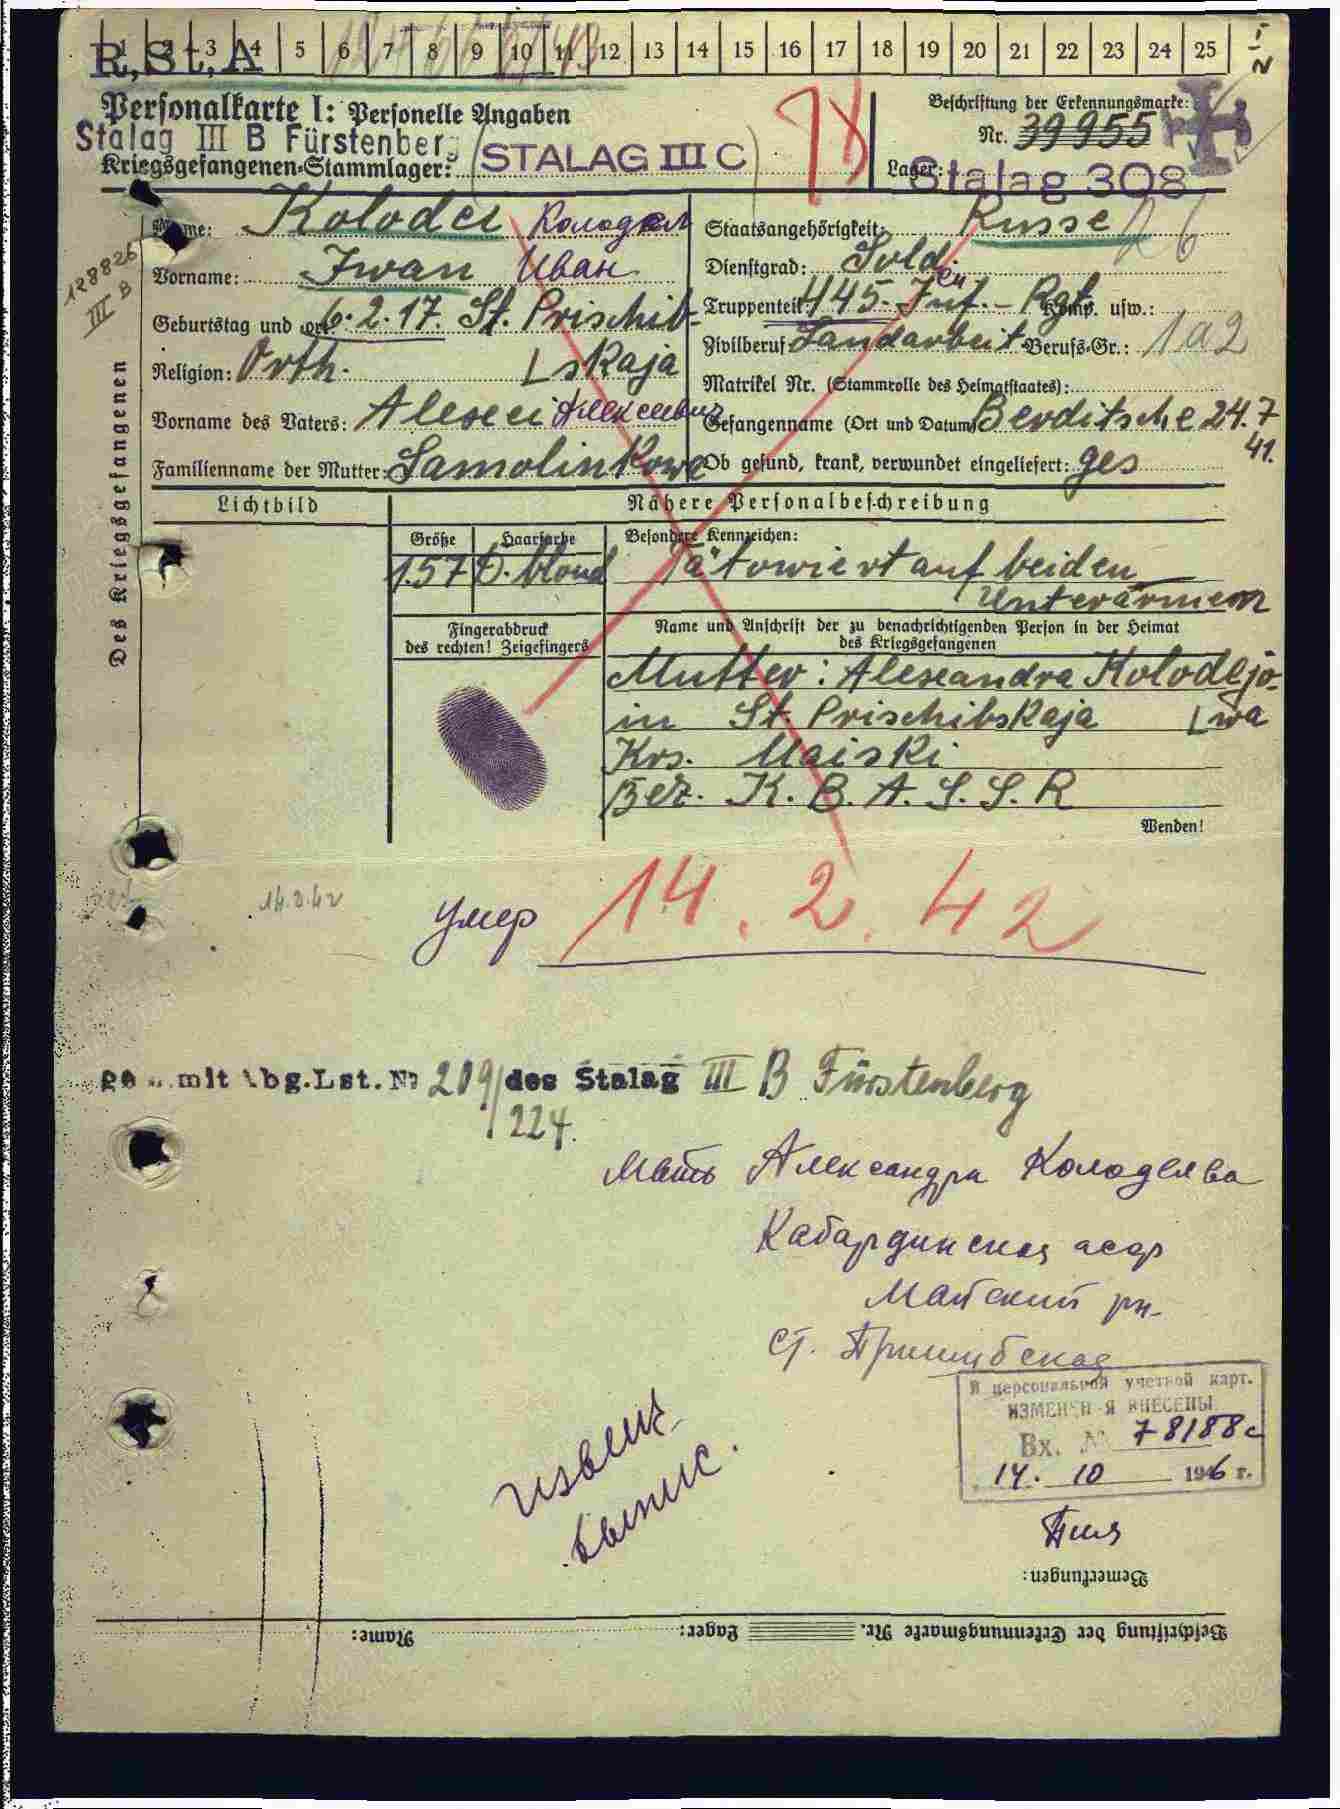 1 2 3 4 5 6 7 8 9 10 11 12 13 14 15 16 17 18 19 20 21 22 23 24 25
R,St,A
Personalkarte I: Personelle Angaben
Beschriftung der Erkennungsmarke:
Stalag III B Fürstenberg
Nr. 39955
Kriegsgefangenen-Stammlager: (STALAG III C)
Lager: Stalag 308
Name: Kolodei Колодей
Staatsangehörigkeit: Russe
Vorname: Iwan Иван
Dienstgrad: Sold.
128826
III B
Geburtstag und -ort 6.2.17. St. Prischib-
skaja
Truppenteil: 445. Inf.-Rgt. Komp. usw.:
Zivilberuf Landarbeit Berufs-Gr.: 1a2
Religion: Orth.
Matrikel Nr. (Stammrolle des Heimatstaates):
Vorname des Vaters: Alexei Алексеевич
Gefangenname (Ort und Datum) Berditsche 24.7
41.
Familienname der Mutter: Samolinkowa
Ob gesund, krank, verwundet eingeliefert: ges
Des Kriegsgefangenen
Lichtbild
Nähere Personalbeschreibung
Größe Haarfarbe Besondere Kennzeichen:
1.57 D. blond Tätowiert auf beiden
Unterarmen
Fingerabdruck
des rechten! Zeigefingers
Name und Anschrift der zu benachrichtigenden Person in der Heimat
des Kriegsgefangenen
Mutter: Alexandra Kolodejo-
wa
in St. Prischibskaja
Krs. Maiski
Bez. K.B.A.S.S.R
Wenden!
14.2.42
умер 14.2.42
mit Abg.Lst. Nr 209/ des Stalag III B Fürstenberg
224.
Мать Александра Колодеява
Кабардинская асср
Майский рн.
Ст. Пришибская
В персональной учетной карт.
ИЗМЕНЕНИЯ ВНЕСЕНЫ
Вх. № 78188с
14. 10 1946 г.
извещ.
выпис.
Bemerkungen:
Beschriftung der Erkennungsmarke Nr. Lager: Name: